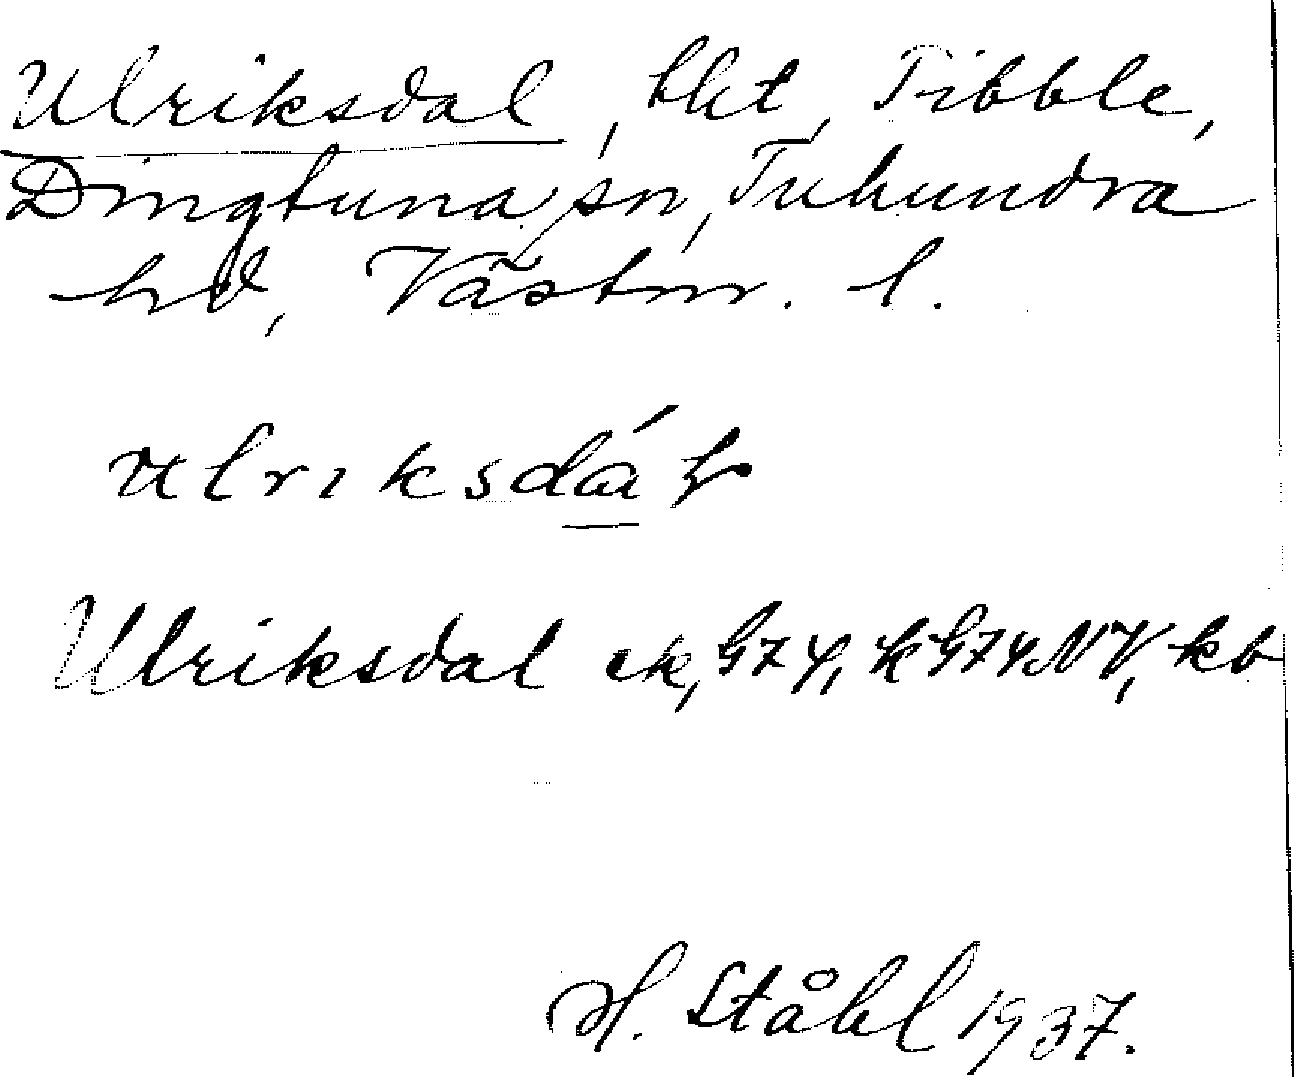 Ulriksdal, bkt, Tibble,
Dingtuna sn, Tuhundra
hd, Västm. l.
Ulriksdal ek, G74, k G74 NV, kb
H. Ståhl 1937.